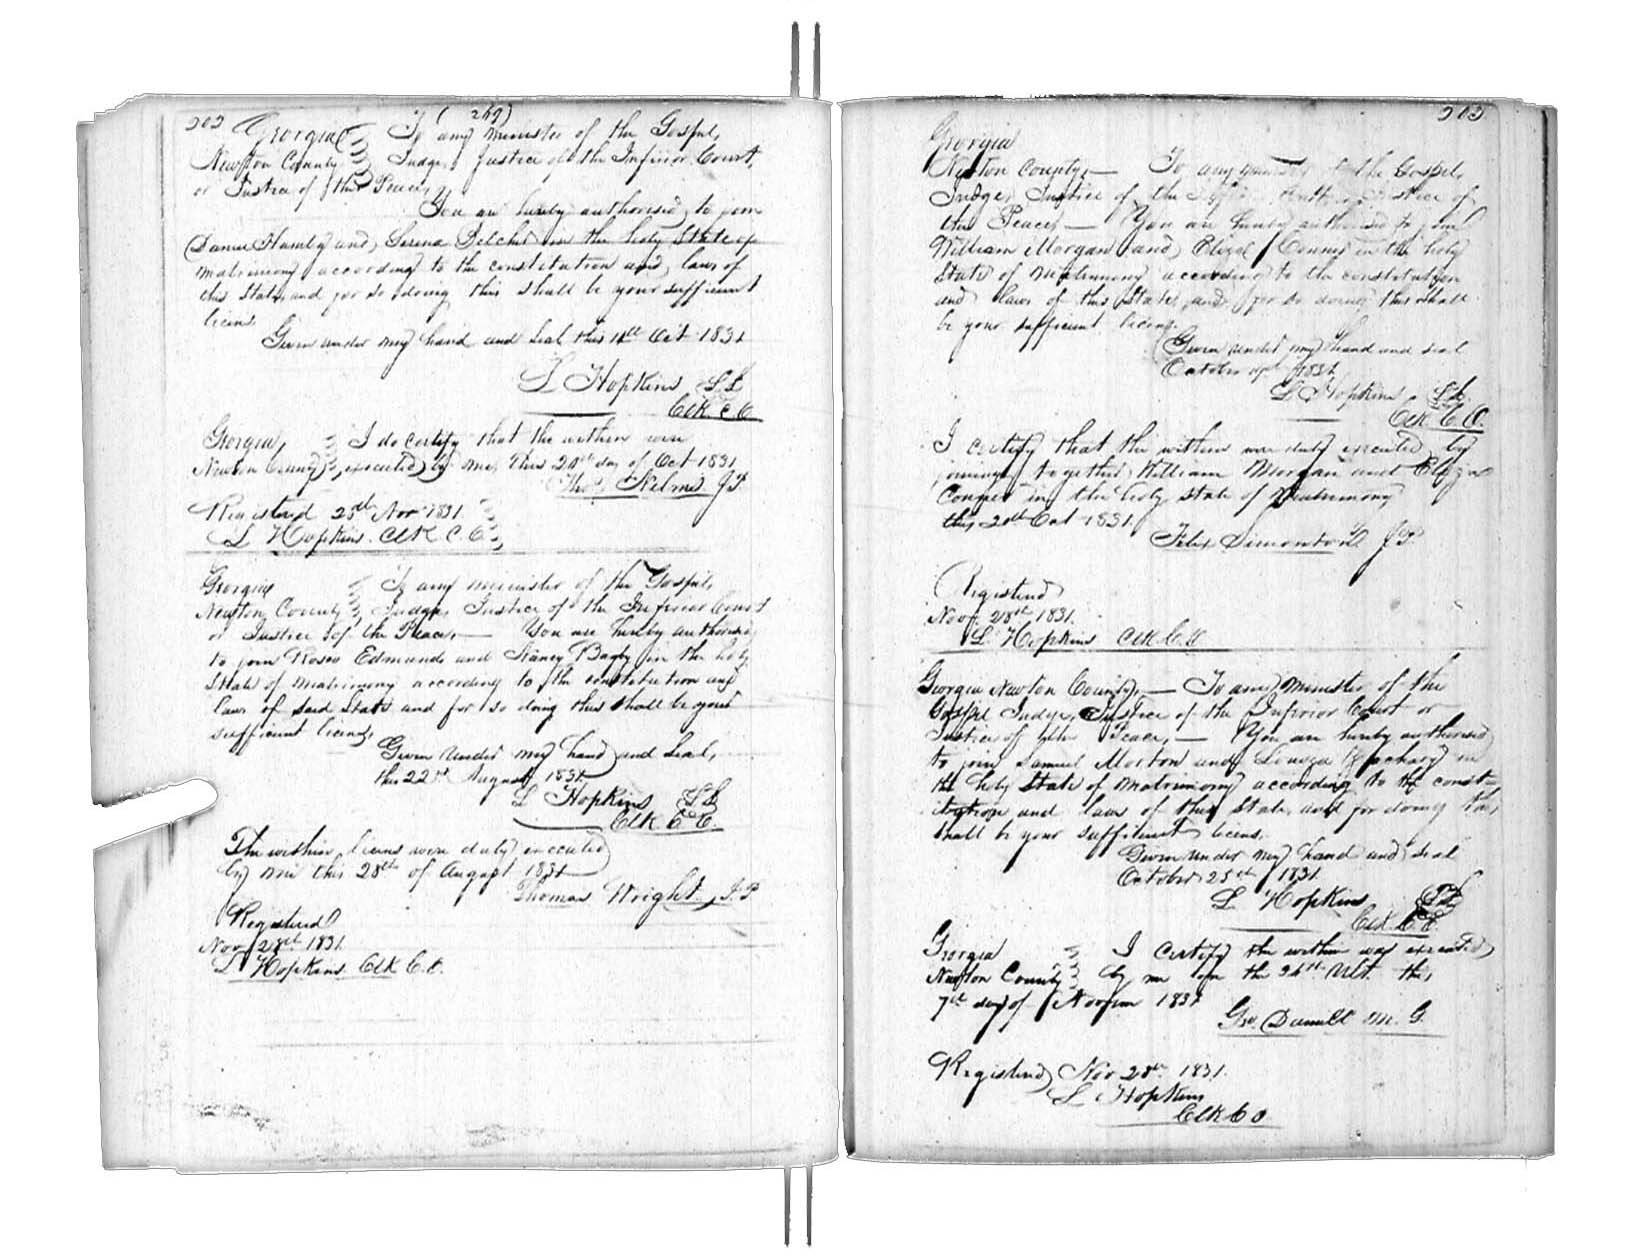 202 (269)
Georgia To any minister of the Gospel,
Newton County Judge, Justice of the Inferior Court,
or Justice of the Peace,
You are hereby authorised to join
Daniel Hamby and Serena Belcher in the holy State of
matrimony according to the constitution and laws of
this State, and for so doing this shall be your sufficient
licens
Given under my hand and seal this 11th Oct 1831
L Hopkins LS
Clk C. O
Georgia, I do certify that the within were
Newton County, executed by me, this 20th day of Oct 1831
Thos. Nelms JP
Registered 25th Nov 1831
L Hopkins. Clk C. O
Georgia To any minister of the Gospel,
Newton County, Judge, Justice of the Inferior Court
or Justice of the Peace,— You are hereby authorised
to join Edmunds and Nancy Bagby in the holy
State of matrimony according to the constitution and
laws of said State and for so doing this shall be your
sufficient licens,
Given under my hand and seal,
this 22nd August 1831
L Hopkins LS
Clk C. O.
The within licens were duly executed
by me this 28th of August 1831
Thomas Wright J. P
Registered
Nov 28th 1831
L Hopkins Clk C. O.
203
Georgia
Newton County,— To any of the Gospel,
Judge, Justice of the Justice of
the Peace,— You are hereby authorised to join
William Morgan and Eliza in the holy
State of Matrimony according to the constitution
and laws of this State, and for so doing this shall
be your sufficient licens.
Given under my hand and seal
October 1831
L Hopkins LS.
Clk C. O.
I certify that the within was duly executed by
joining together William Morgan and Eliza
in the holy state of Matrimony
this 20th Oct 1831.
Felix Simonton JP
Registered
Nov. 28th 1831.
L. Hopkins Clk C. O
Georgia Newton County,— To any minister of the
Gospel Judge, Justice of the Inferior Court or
Justice of the Peace,— You are hereby authorised
to join Samuel Morton and Louisa Zachary in
the holy State of Matrimony according to the const-
itution and laws of this State and for doing this
shall be your sufficient licens.
Given under my hand and seal
October 25th 1831.
L Hopkins LS
Clk C. O.
Georgia I certify the within was executed
Newton County by me on the Ult. this
7th day of 1831
Geo. M. G.
Registered Nov 28th 1831.
L Hopkins
Clk C O